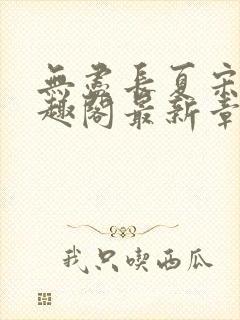 無盡長夏宋
趣閣最新章
我只喫西瓜